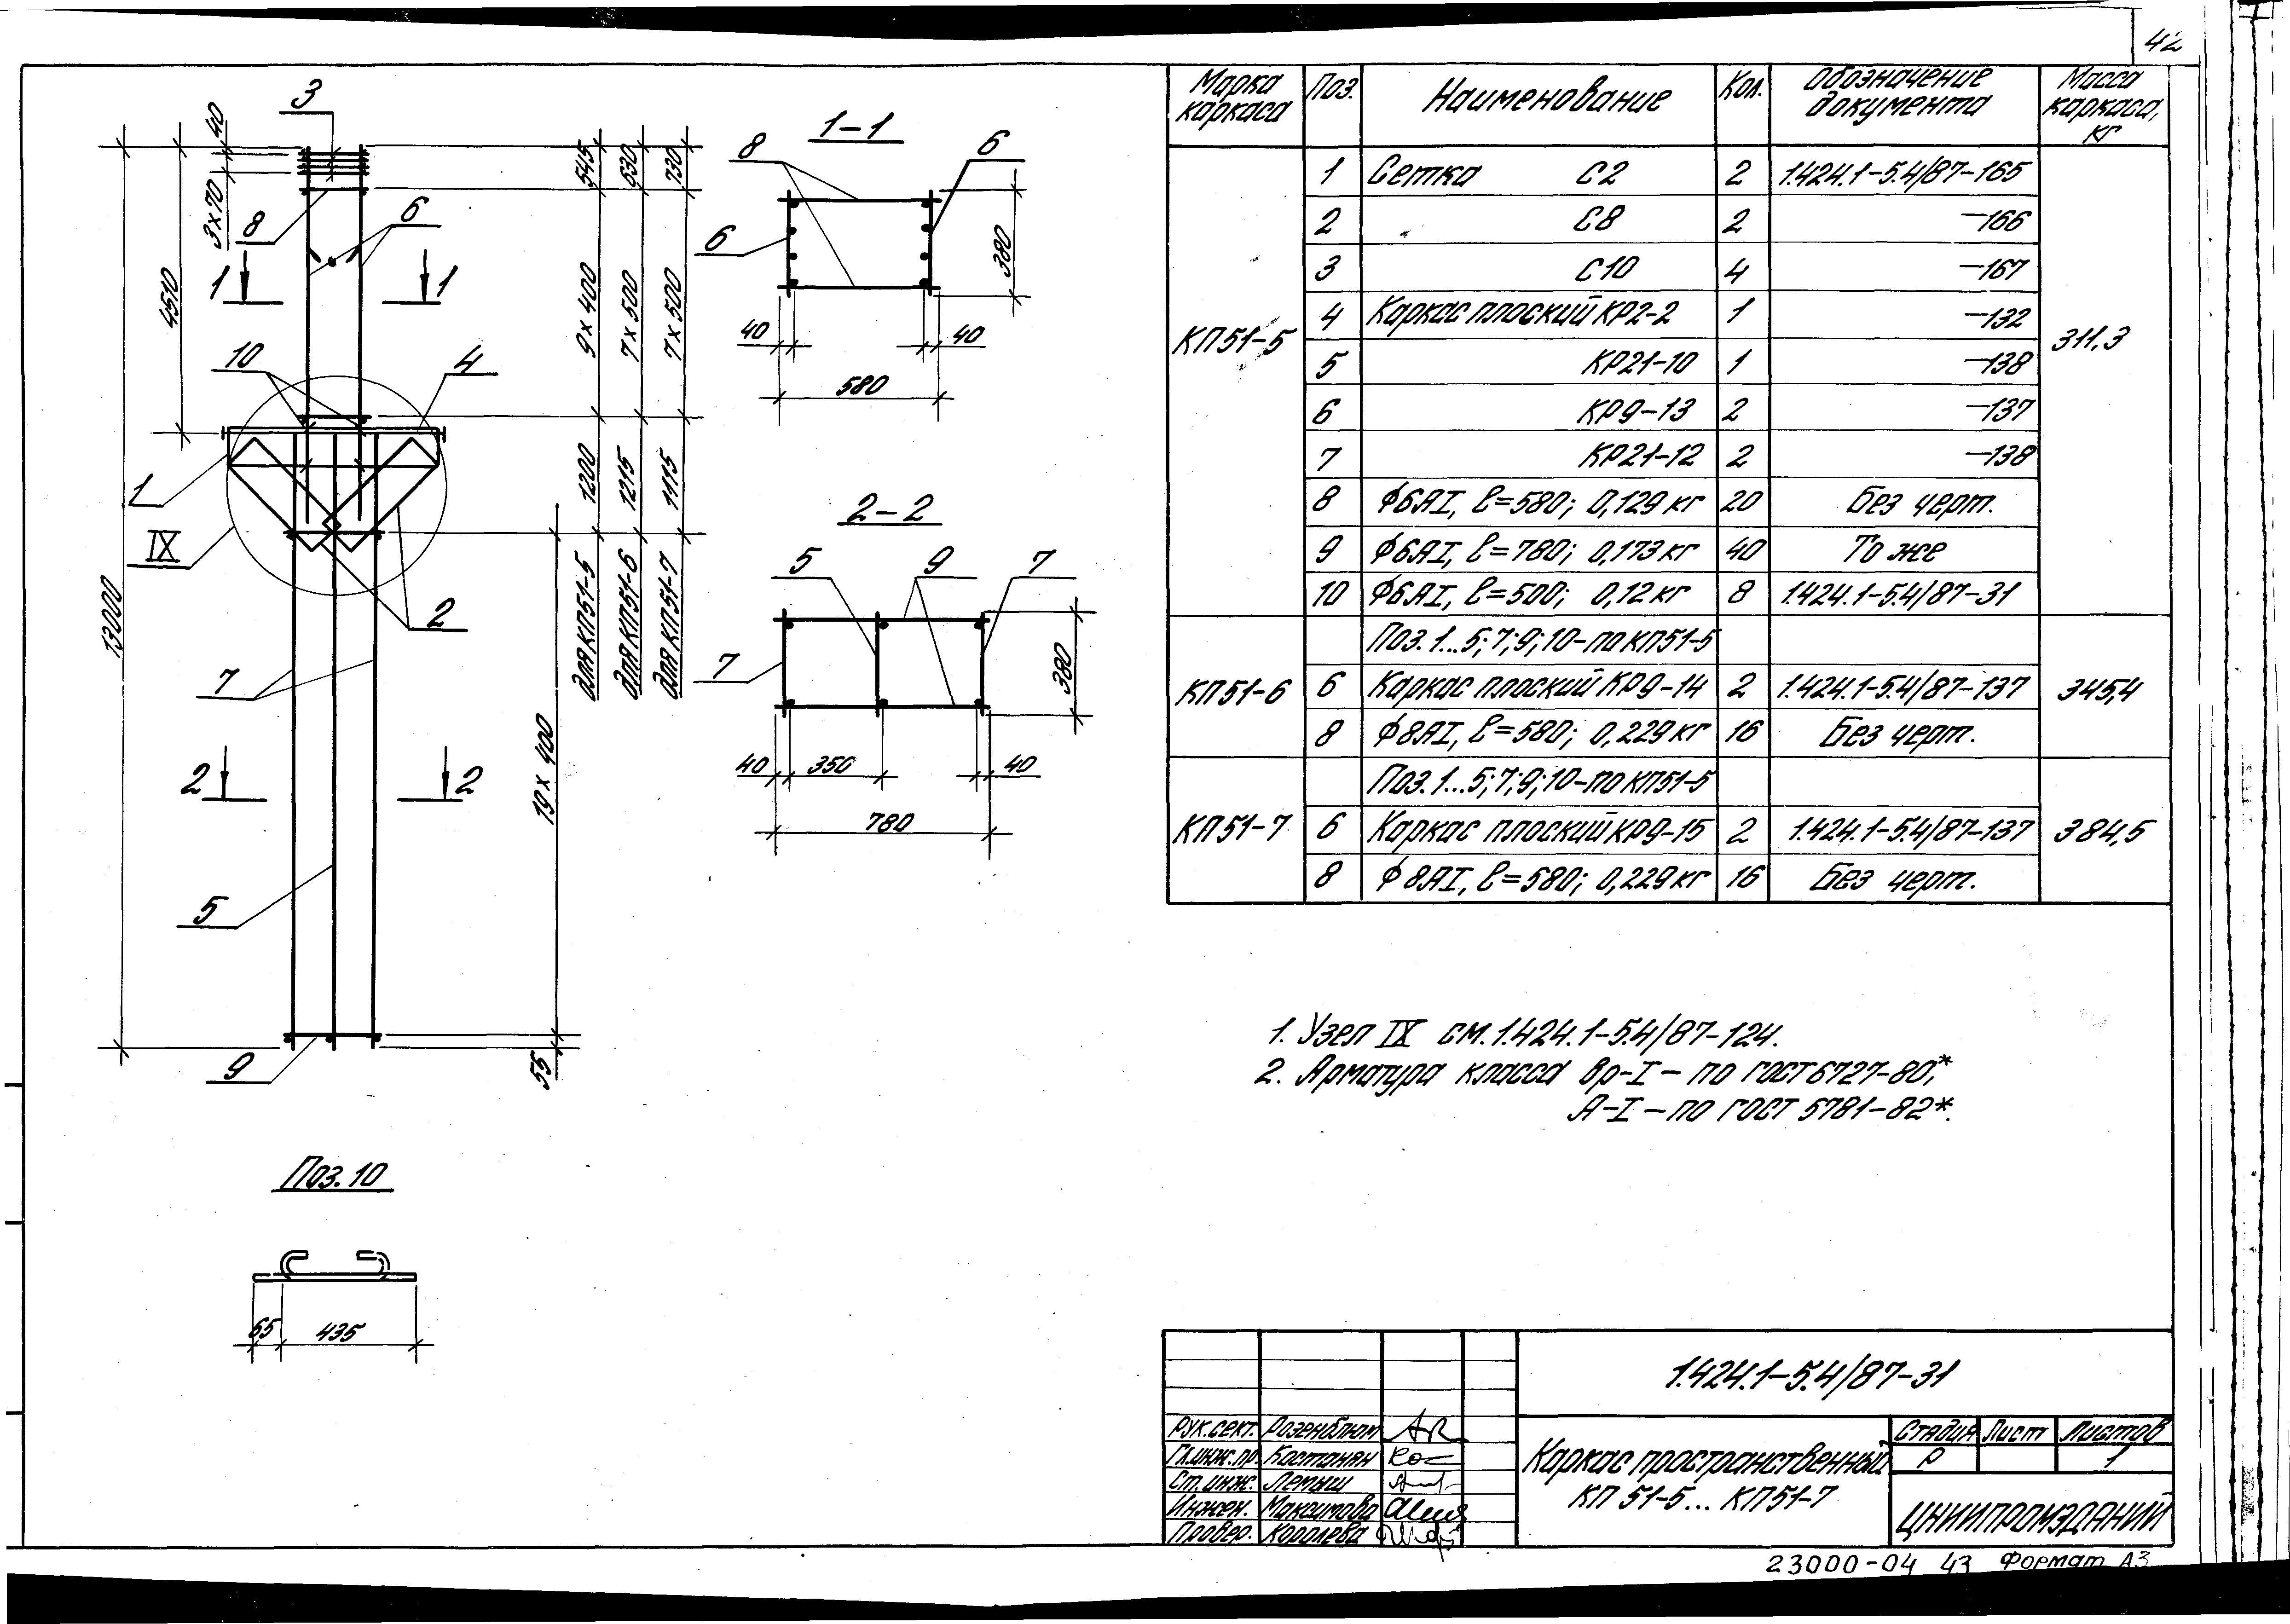 42
Марка каркаса
Поз.
Наименование
Кол.
Обозначение документа
Масса каркаса, кг
КП51-5
1 Сетка С2 2 1.424.1-5.4/87-165
2 С8 2 -166
3 С10 4 -167
4 Каркас плоский КР2-2 1 -132
5 КР21-10 1 -138
6 КР9-13 2 -137
7 КР21-12 2 -138
8 ф6АI, ℓ=580; 0,129 кг 20 Без черт.
9 ф6АI, ℓ=780; 0,173 кг 40 То же
10 ф6АI, ℓ=500; 0,12 кг 8 1.424.1-5.4/87-31
311,3
КП51-6
Поз. 1...5; 7; 9; 10 - по КП51-5
6 Каркас плоский КР9-14 2 1.424.1-5.4/87-137
8 ф8АI, ℓ=580; 0,229 кг 16 Без черт.
345,4
КП51-7
Поз. 1...5; 7; 9; 10 - по КП51-5
6 Каркас плоский КР9-15 2 1.424.1-5.4/87-137
8 ф8АI, ℓ=580; 0,229 кг 16 Без черт.
384,5
3
40
3х70
8
6
1 1
4510
10
4
1
IX
2
13000
7
2 2
5
9
545
630
730
9х400
7х500
7х500
1200
1215
1115
для КП51-5
для КП51-6
для КП51-7
19х400
55
1-1
8
6
6
380
40
40
580
2-2
5
9
7
7
380
40
350
40
780
Поз. 10
65
435
1. Узел IX см. 1.424.1-5.4/87-124.
2. Арматура класса Вр-I - по ГОСТ 6727-80*,
А-I - по ГОСТ 5781-82*.
1.424.1-5.4/87-31
Рук. сект. Розенблюм
Гл. инж. пр. Костанян
Ст. инж. Лепыш
Инжен. Максимова
Провер. Королева
Каркас пространственный
КП 51-5... КП51-7
Стадия Лист Листов
Р 1
ЦНИИПРОМЗДАНИЙ
23000-04 43 Формат А3